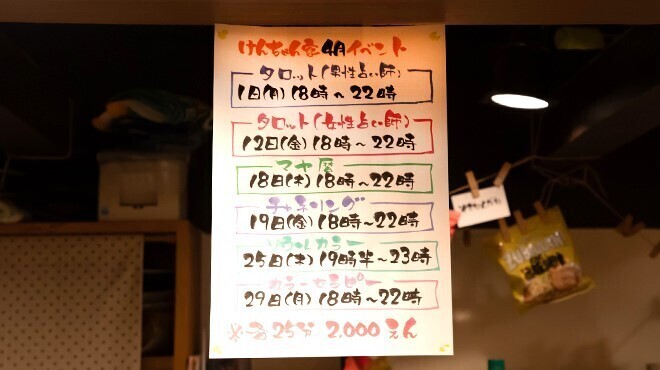 けんちゃん家4月イベント
タロット(男性占い師)
1日(月)18時〜22時
タロット(女性占い師)
12日(金)18時〜22時
マヤ暦
18日(木)18時〜22時
チャネリング
19日(金)18時〜22時
ソウルカラー
25日(木)19時半〜23時
カラーセラピー
29日(月)18時〜22時
※各25分 2,000えん